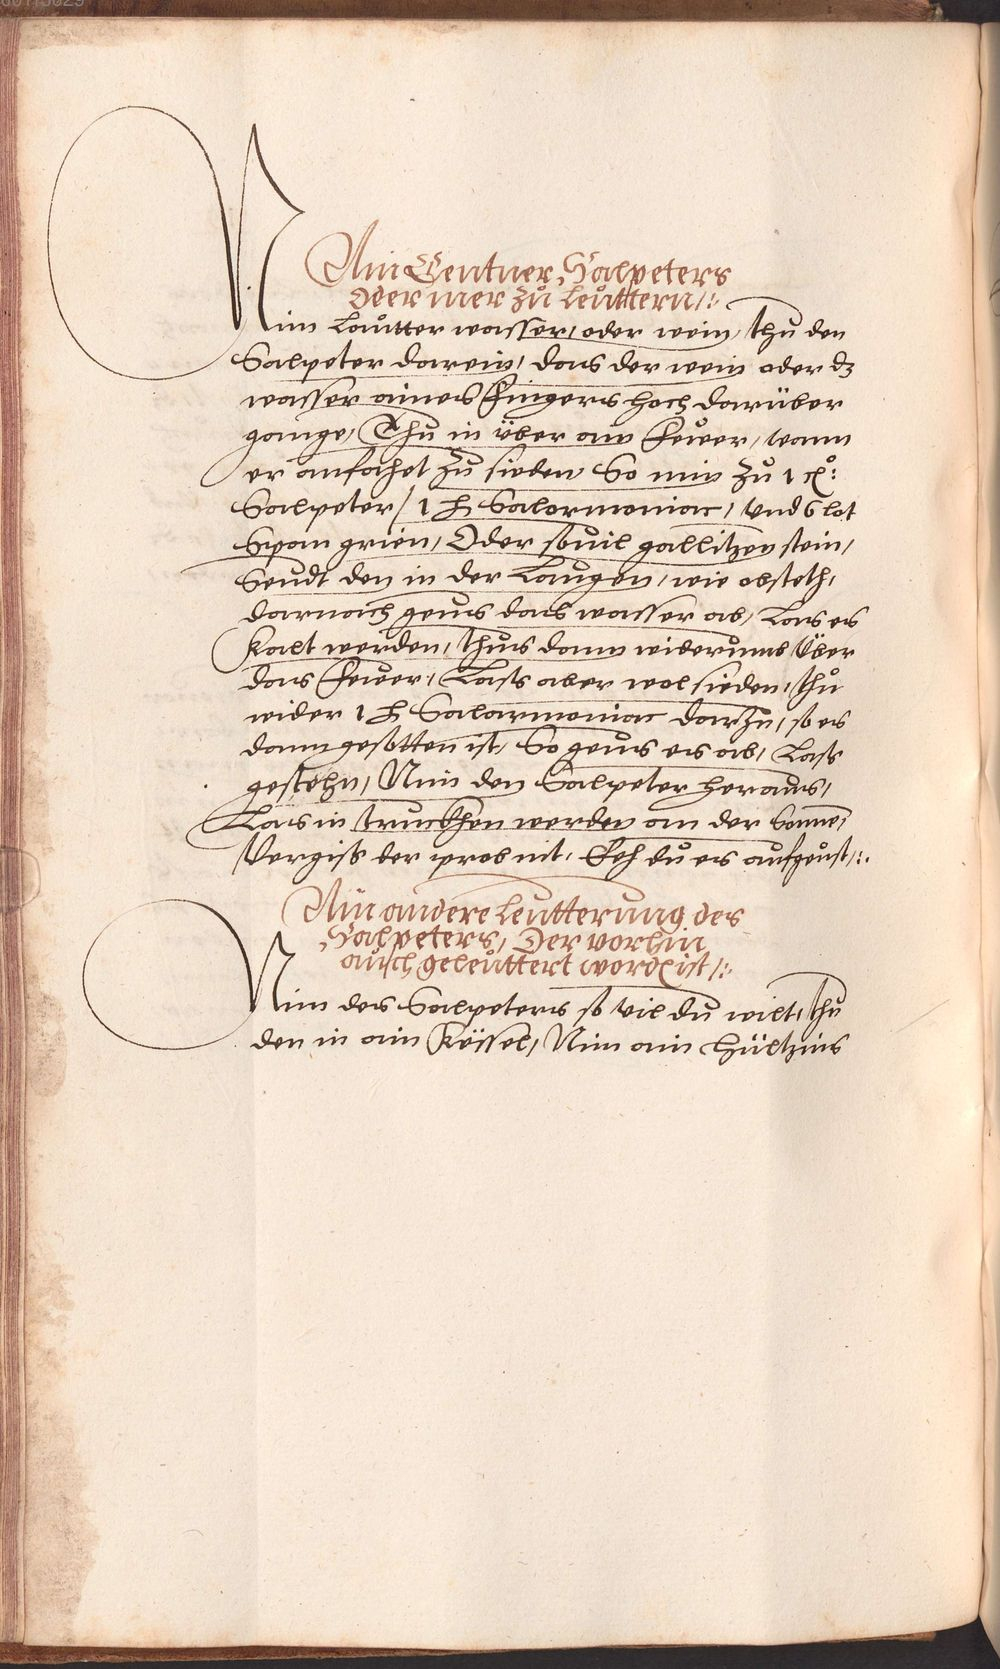 Ain Centner Salpeters
oder mer zů leüttern /:
Nim Lautter wasser, oder wein, thů den
Salpeter darein, das der wein oder dz
wasser aines Fingers hoch darüber
gange, Thů in über ain Fewer, wann
er anfahet zů sieden So nim zů 1 c̶o̶:
Salpeter / 1 ℔ Salarmoniac, Und 6 lot
Span grien, Oder sovil gallitzen stein,
Seudt den in der Laugen, wie obsteth,
darnach geus das wasser ab, Las es
kalt werden, thůs dann widerumb Über
das Fewer, Lasts aber wol sieden, thů
wider 1 ℔ Salarmoniac darzu, so es
dann gesotten ist, So geus es ab, Lass
gestehn, Nim den Salpeter heraus,
Las in truckhen werden an der Sonne,
Vergiss der prob nit, Eeh du es aufgeust /:.
Ain andere leutterung des
Salpeters, Der vorhin
auch geleüttert worden ist /:
Nim des Salpeters so vil du wilt, thů
den in ain Kessel, Nim ain hültzins